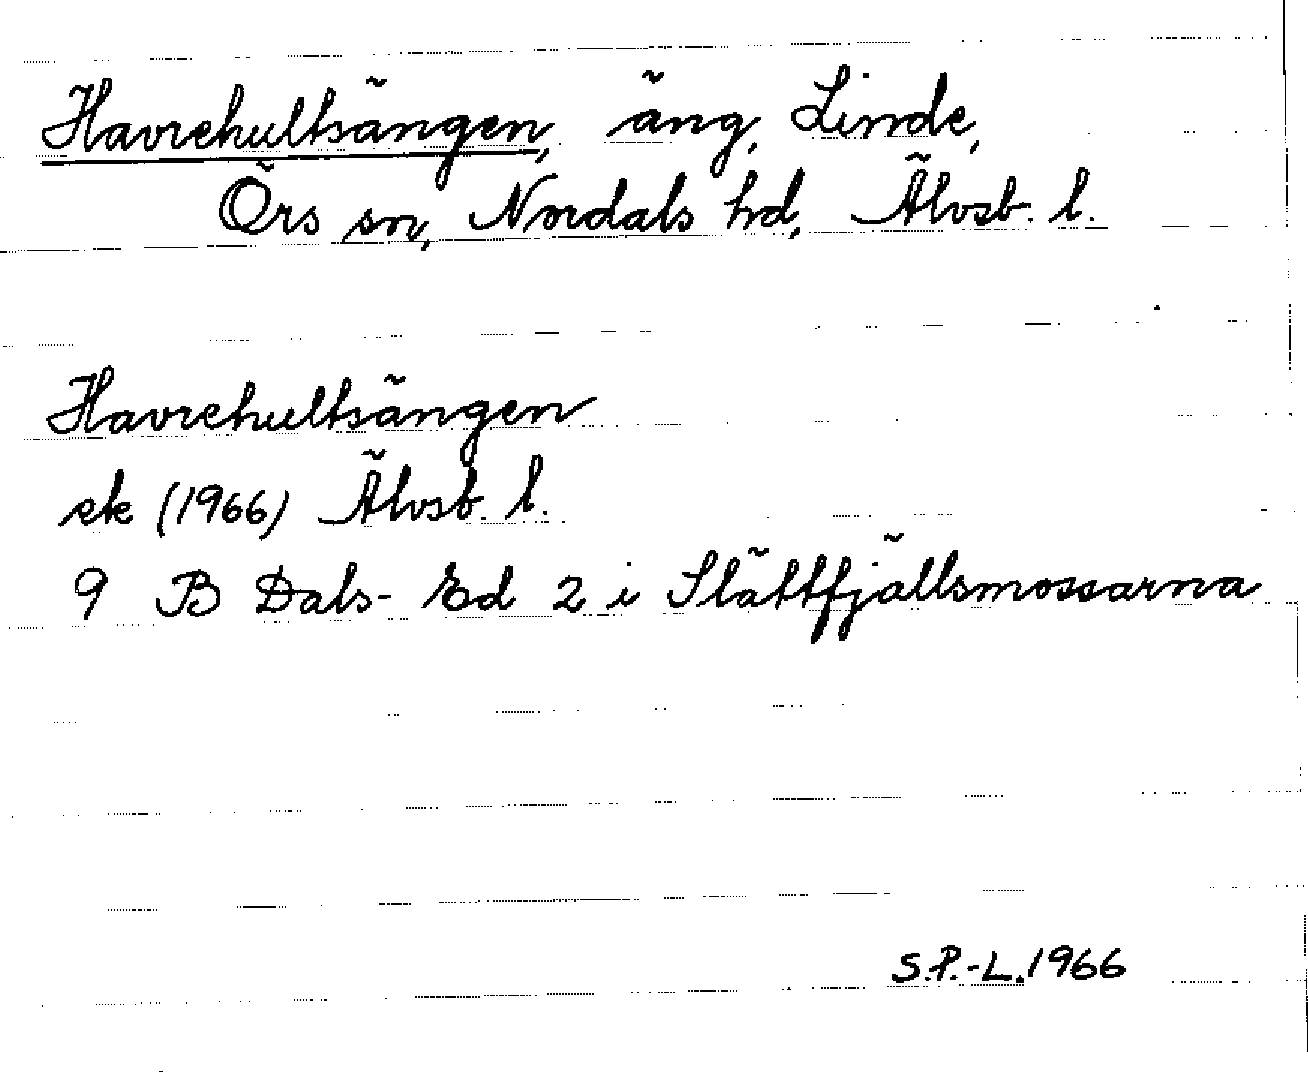 Havrehultsängen, äng, Linde,
Örs sn, Nordals hd, Älvsb. l.
Havrehultsängen
ek (1966) Älvsb. l.
9 B Dals-Ed 2 i Slättfjällsmossarna
S.P.-L. 1966